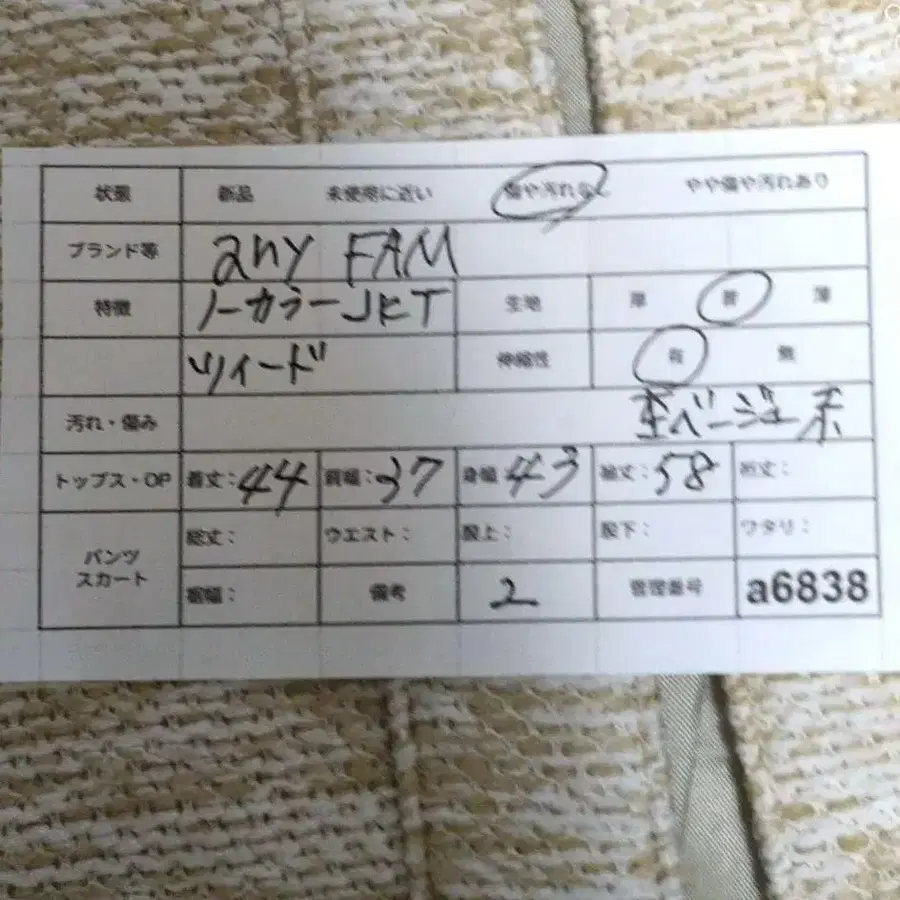 状態 新品 未使用に近い 傷や汚れなし やや傷や汚れあり
ブランド等 any FAM
特徴 ノーカラーJKT 生地 厚 普 薄
ツイード 伸縮性 有 無
汚れ・傷み ベージュ系
トップス・OP 着丈:44 肩幅:37 身幅:43 袖丈:58 裄丈:
パンツ スカート 総丈: ウエスト: 股上: 股下: ワタリ:
裾幅: 備考 2 管理番号 a6838